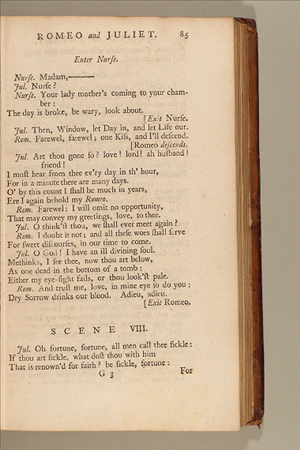 ROMEO and JULIET. 85
Enter Nurse.
Nurse. Madam,———
Jul. Nurse?
Nurse. Your lady mother's coming to your cham-
ber:
The day is broke, be wary, look about.
[Exit Nurse.
Jul. Then, Window, let Day in, and let Life out.
Rom. Farewel, farewel; one Kiss, and I'll descend.
[Romeo descends.
Jul. Art thou gone so? love! lord! ah husband!
friend!
I must hear from thee ev'ry day in th' hour,
For in a minute there are many days.
O' by this count I shall be much in years,
Ere I again behold my Romeo.
Rom. Farewel: I will omit no opportunity,
That may convey my greetings, love, to thee.
Jul. O think'st thou, we shall ever meet again?
Rom. I doubt it not; and all these woes shall serve
For sweet discourses, in our time to come.
Jul. O God! I have an ill divining soul.
Methinks, I see thee, now thou art below,
As one dead in the bottom of a tomb:
Either my eye-sight fails, or thou look'st pale.
Rom. And trust me, love, in mine eye so do you:
Dry Sorrow drinks our blood. Adieu, adieu.
[Exit Romeo,
SCENE VIII.
Jul. Oh fortune, fortune, all men call thee fickle:
If thou art fickle, what dost thou with him
That is renown'd for faith? be fickle, fortune:
G 3 For